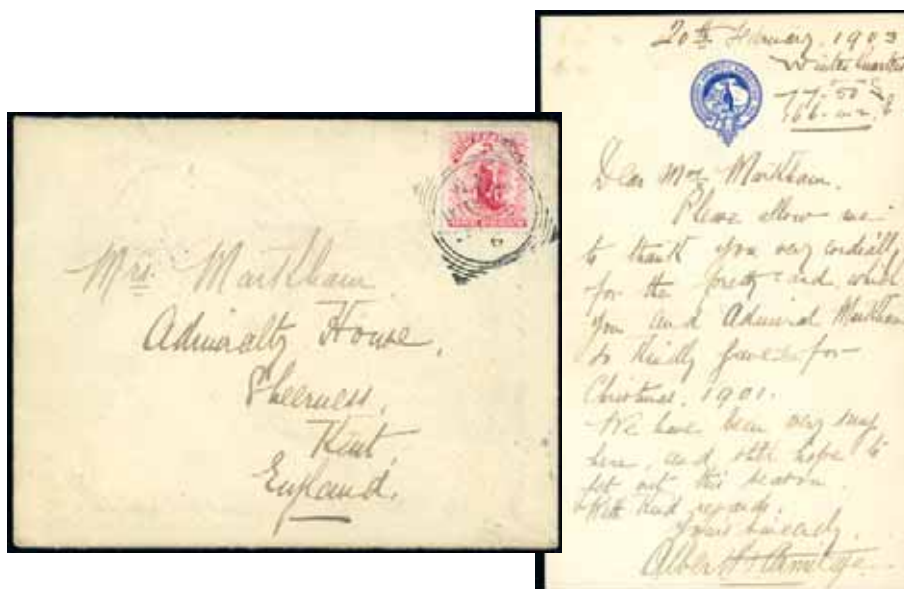 Mrs. Markham
Admiralty House,
Sheerness,
Kent,
England.
20th February, 1903
Winter Quarters
77-50
166-
Dear Mrs Markham.
Please allow me
to thank you very cordially
for the pretty card which
you and Admiral Markham
so kindly gave for
Christmas, 1901.
We have been very snug
here, and still hope to
get out this season.
With kind regards.
Yours sincerely,
Albert Armitage